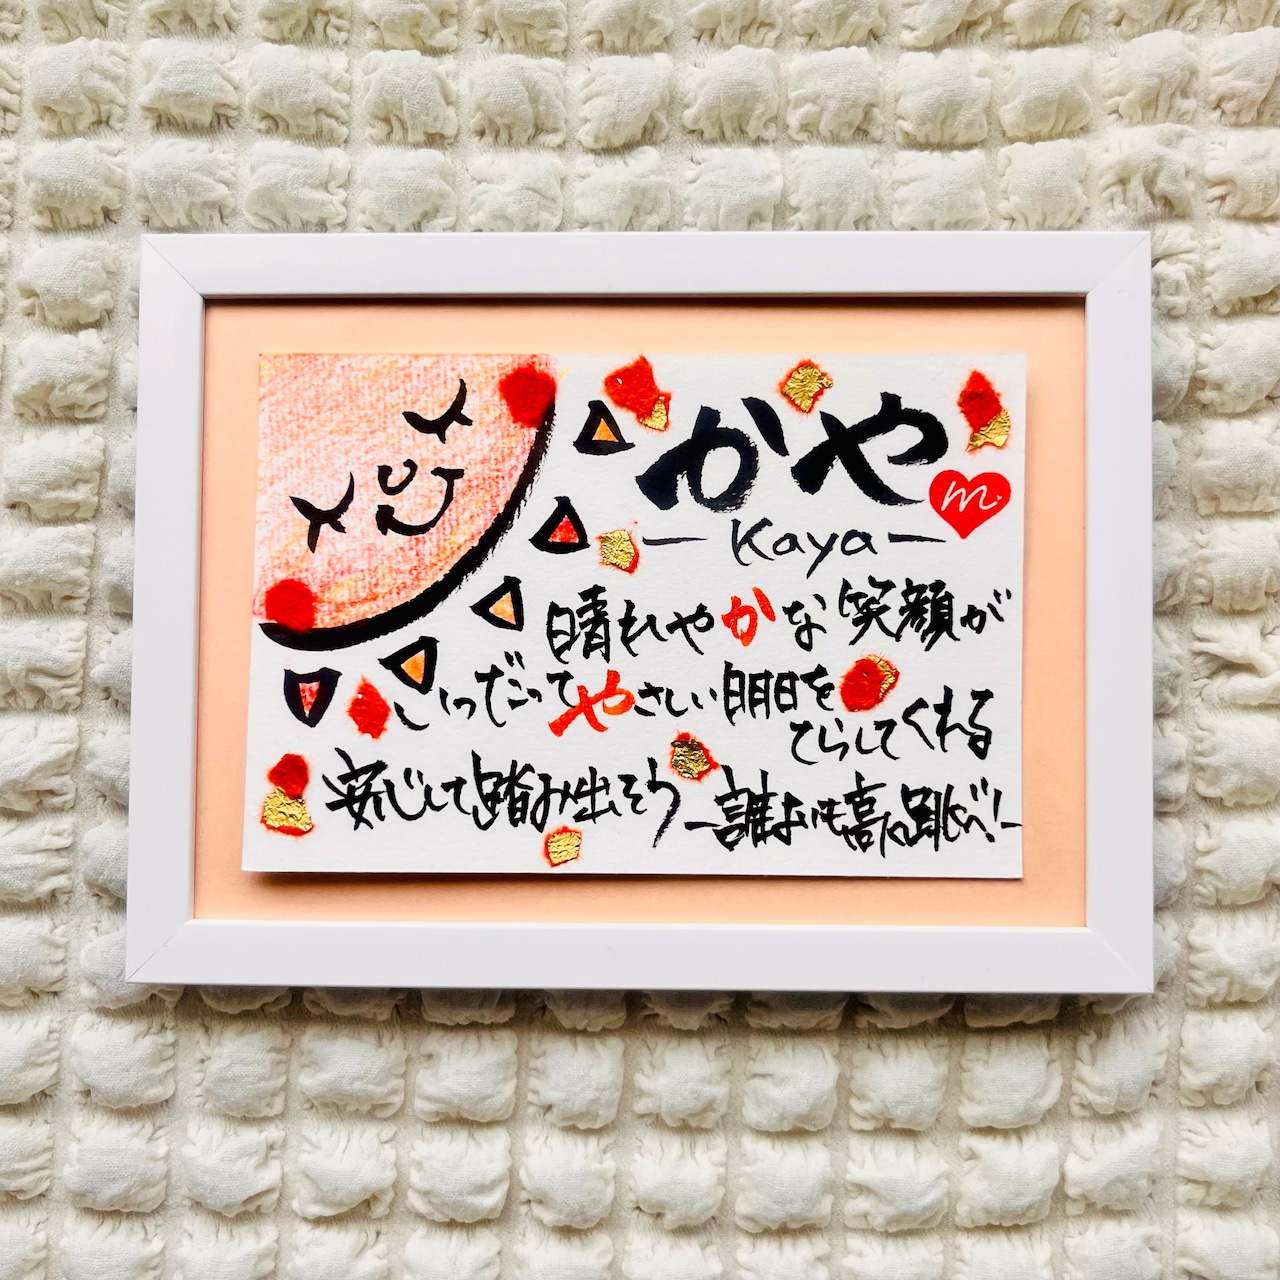 かや
m.
— Kaya —
晴れやかな笑顔が
いつだってやさしい明日を
てらしてくれる
安心して踏み出そう
—誰よりも高く跳べ!—